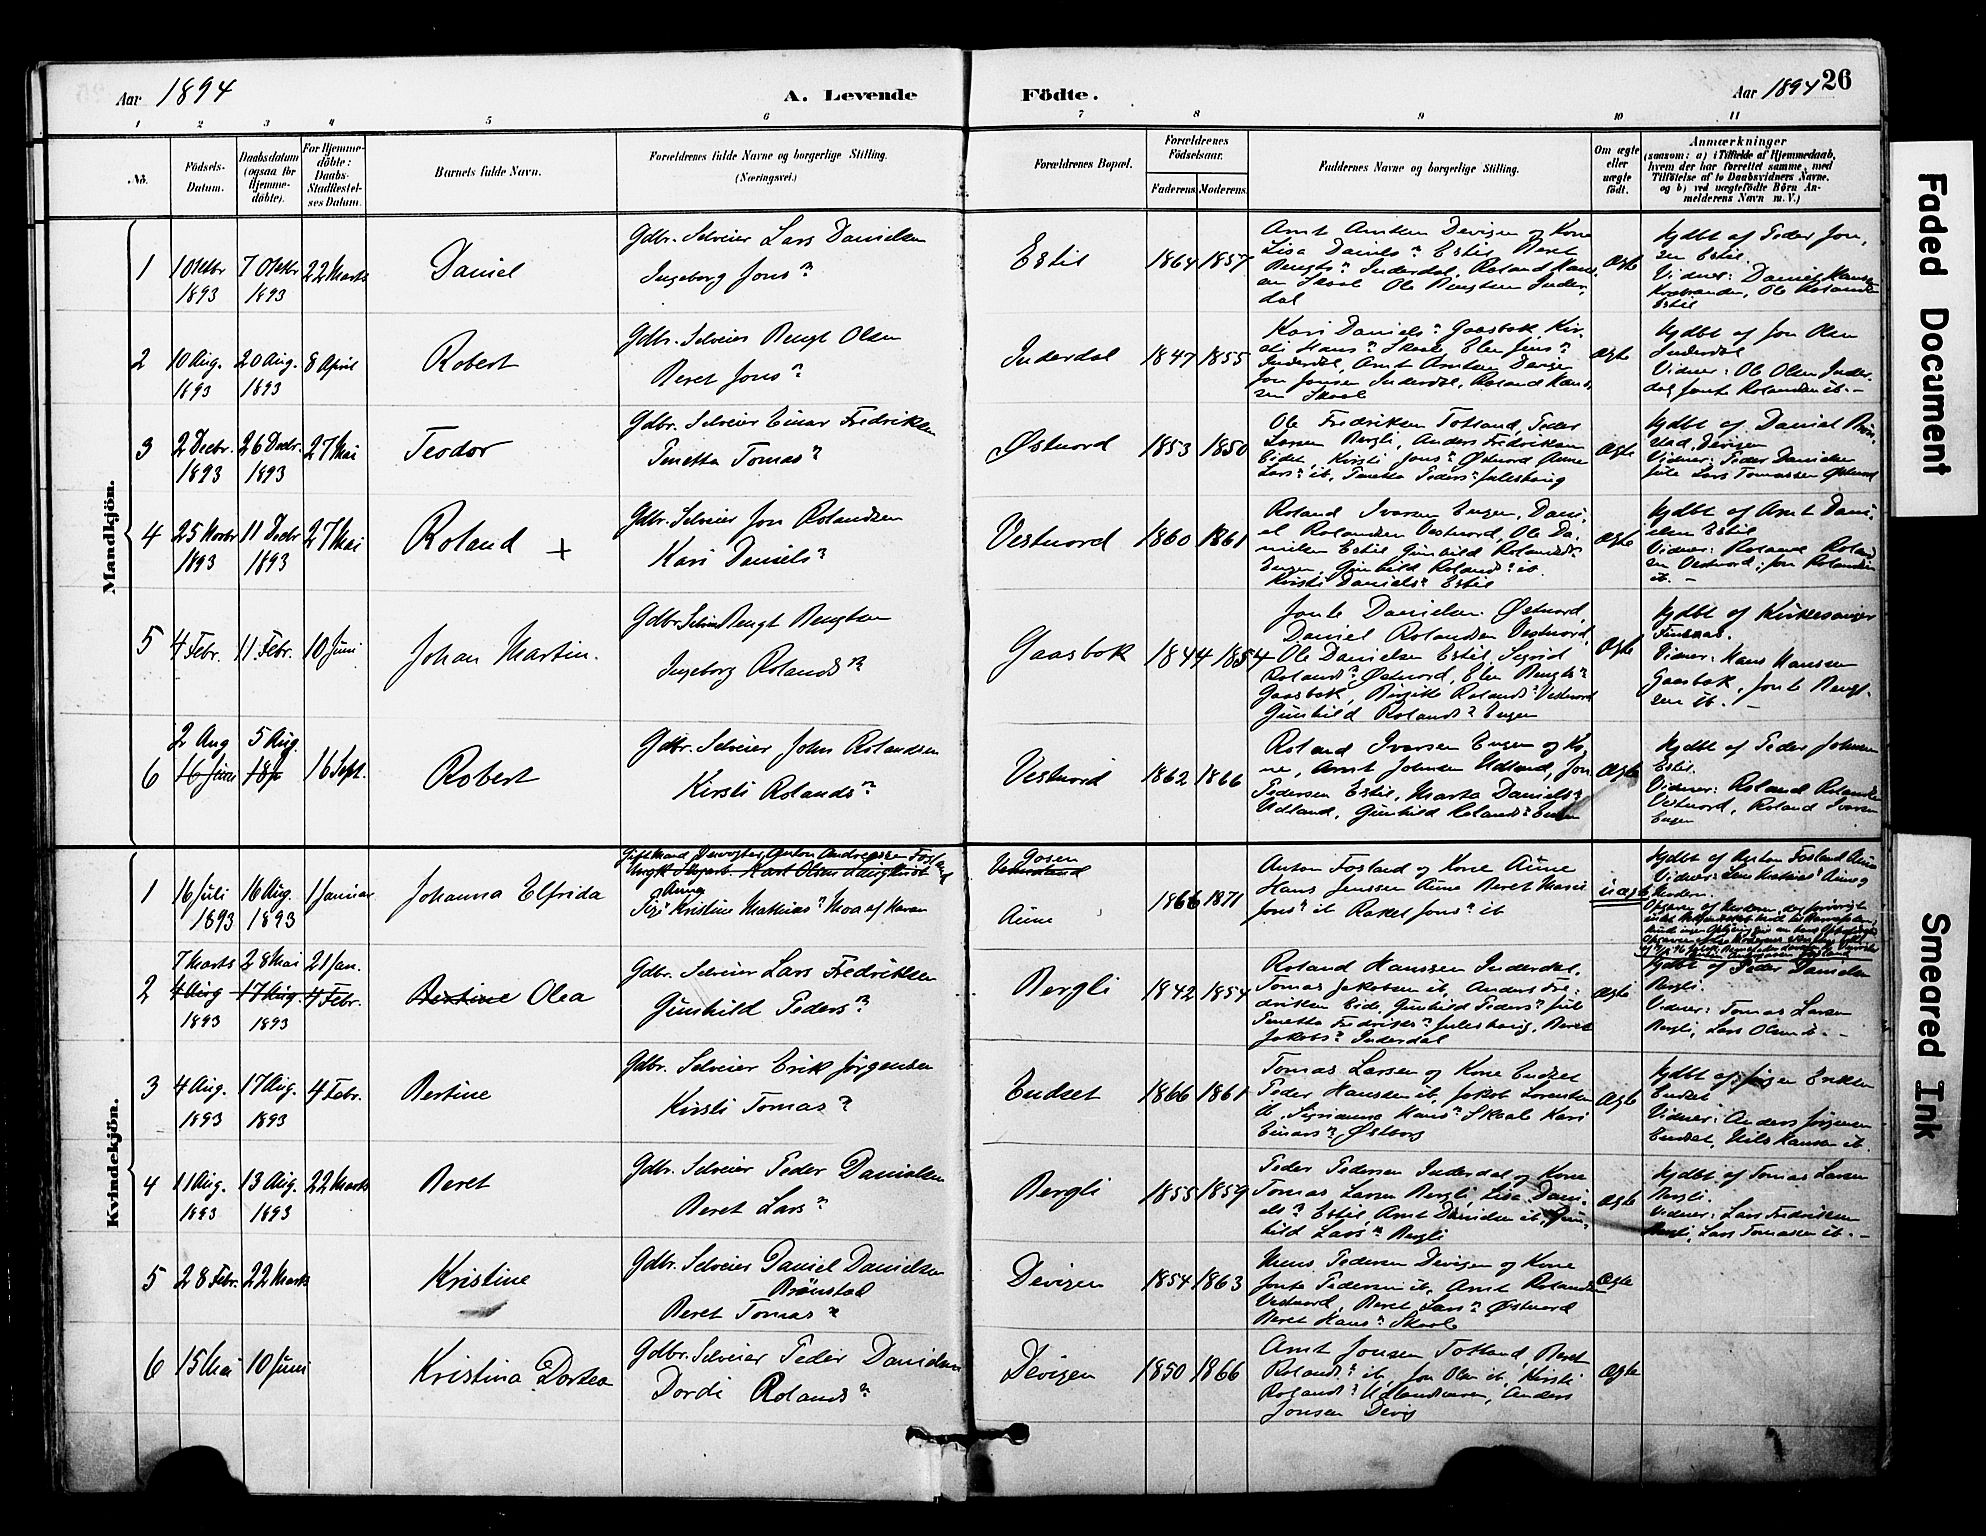 Aar 1894
A. Levende Födte.
Aar 1894 26
1 2 3 4 5 6 7 8 9 10 11
No.
Födsels-Datum.
Daabsdatum (ogsaa for Hjemmedöbte).
For Hjemmedöbte: Daabs-Stadfestelses Datum.
Barnets fulde Navn.
Forældrenes fulde Navne og borgerlige Stilling.
(Næringsvei.)
Forældrenes Bopæl.
Forældrenes Födselsaar.
Faderens. Moderens.
Faddernes Navne og borgerlige Stilling.
Om ægte eller uægte födt.
Anmærkninger
(saasom: a) i Tilfælde af Hjemmedaab, hvem der har forrettet samme, med Tilföielse af to Daabsvidners Navne, og b) ved uægtefödte Börn Anmelderens Navn m. V.)
Mandkjön.
1 1 Oktbr 1893 7 Oktbr 1893 22 Marts Daniel
Gdbr. Selveier Lars Danielsen
Ingeborg Jonsn
Estil 1864 1857
Arnt Arntsen Devigen og Kone
Lisa Danielsn Estil Beret
Bengtsn Inderdal, Roland Hans
sen Skaal Ole Bengtsen Inder
dal
Ægte
Hjdbt af Peder Jon,
sen Estil
Vidner: Daniel Hansen
Ole Rolandsen
Estil
2 10 Aug. 1893 20 Aug. 1893 8 April Robert
Gdbr. Selveier Bengt Olsen
Beret Jonsn
Inderdal 1847 1855
Kari Danielsn Gaasbak, Kir,
sti Hansn Skaal Elen Jensn
Inderdal, Arnt Arntsen Devigen
Jon Jonsen Inderdal, Roland Hans,
sen Skaal
Ægte
Hjdbt af Jon Olsen
Inderdal
Vidner: Ole Olsen Inder,
dal, Jonte Rolandsen ib. -
3 2 Decbr. 1893 26 Decbr. 1893 27 Mai Teodor
Gdbr. Selveier Einar Fredriksen
Penetta Tomasn
Østnord 1853 1850
Ole Fredriksen Totland, Peder
Larsen Bergli, Anders Fredriksen
Eidet, Kirsti Jonsn Østnord Anne
Larsn ib, Penetta Pedersn Julesharig
Ægte
Hjdbt af Daniel Brön
stad, Devigen
Vidner: Peder Danielsen
Lars Tomassen Østnord
4 25 Novbr 1893 11 Decbr 1893 27 Mai Roland +
Gdbr. Selveier Jon Rolandsen
Kari Danielsn
Vestnord 1860 1861
Roland Ivarsen Engen, Dani,
el Rolandsen Vestnord, Ole Da,
nielsen Estil Gunhild Rolandsn
Engen, Gunhild Rolandsn ib.
Kirsti Danielsn Estil
Ægte
Hjdbt af Arnt Dani,
elsen Estil
Vidner: Roland Roland
sen Vestnord, Jon Rolandsen
ib. -
5 4 Febr. 11 Febr. 10 Juni Johan Martin.
Gdbr. Selveier Bengt Bengtsen
Ingeborg Rolandsn
Gaasbak 1844 1854
Jonte Danielsen Østnord,
Daniel Rolandsen Vestnord,
Ole Danielsen Estil, Sigrid
Rolandsn Østnord, Elen Bengtsn
Gaasbak, Birgitte Rolandsn Vestnord
Gunhild Rolandsn Engen
Ægte
Hjdbt af Kirkesanger
Finsnas.
Vidner: Hans Hanssen
Gaasbak, Jonte Bengt,
sen ib. -
6 2 Aug 16 Juni 5 Aug. 16 Sept. Robert
Gdbr. Selveier John Rolandsen
Kirsti Rolandsn
Vestnord 1862 1866
Roland Ivarsen Engen og Ko,
ne, Arnt Johnsen Udland, Jon
Pedersen Estil, Marta Danielsn
Udland, Gunhild Rolandsn Engen
Ægte
Hjdbt af Peder Johnsen
Estil.
Vidner: Roland Rolandsen
Vestnord, Roland Ivarsen
Engen
Kvindekjön.
1 16 Juli 1893 16 Aug. 1893 1 Januar Johanna Elfrida
Gift Mand Anton Andreassen Fosland
Ungk. Karl Olsen
Aune
Pige Kristine Mathiasn Moa af Haven
Gosen
Aune 1866 1871
Anton Fosland og Kone Aune
Hans Jenssen Aune Beret Marie
Jonsn ib Rakel Jonsn ib
uægte
Hjdbt af Anton Fosland Aune
2 7 Marts 4 Aug 1893 28 Mai 17 Aug. 1893 21 Jan. 4 Febr. Bertine Olea
Gdbr. Selveier Lars Fredriksen
Gunhild Pedersn
Bergli 1842 1854
Roland Hanssen Inderdal,
Tomas Jakobsen ib, Anders Fre,
driksen Eide, Gunhild Pedersn
Penetta Fredriksn Julesharig, Beret
Jakobsn Inderdal
Ægte
Hjdbt af Peder Danielsen
Bergli.
Vidner: Tomas Larsen
Bergli, Lars Olsen ib. -
3 4 Aug. 1893 17 Aug. 1893 4 Febr. Bertine
Gdbr. Selveier Erik Jørgensen
Kirsti Tomasn
Endset 1866 1861
Tomas Larsen og Kone Endset
Peder Hanssen ib, Jakob Lorentsen
ib, Hansn Skaal Kari
Einarsn Østborg
Ægte
Hjdbt af Jørgen Eriksen
Endset
Vidner: Anders Jørgensen
Endset, Nils Hansen ib.
4 11 Aug. 1893 13 Aug. 1893 22 Marts Beret
Gdbr. Selveier Peder Danielsen
Beret Larsn
Bergli 1855 1859
Peder Pedersen Inderdal og Kone
Tomas Larsen Bergli, Lisa Dani,
elsn Estil, Arnt Danielsen ib, Gun,
hild Larsn Bergli
Ægte
Hjdbt af Tomas Larsen
Bergli.
Vidner: Lars Fredriksen
Bergli, Lars Tomassen ib. -
5 28 Febr. 22 Marts Kristine
Gdbr. Selveier Daniel Danielsen
Brönstad
Beret Tomasn
Devigen 1854 1863
Mons Pedersen Devigen og Kone
Jonte Pedersen ib, Arnt Rolandsen
Vestnord, Beret Larsn Østnord
Beret Hansn Skaale
Ægte
6 15 Mai 10 Juni Kristina Dortea
Gdbr. Selveier Peder Danielsen
Dordi Rolandsn
Devigen 1850 1866
Arnt Jonsen Totland, Beret
Rolandsn ib, Jon Olsen ib, Kirsti
Rolandsn Udlandsaunen, Anders
Jonsen Devig
Ægte
Faded Document
Smeared Ink